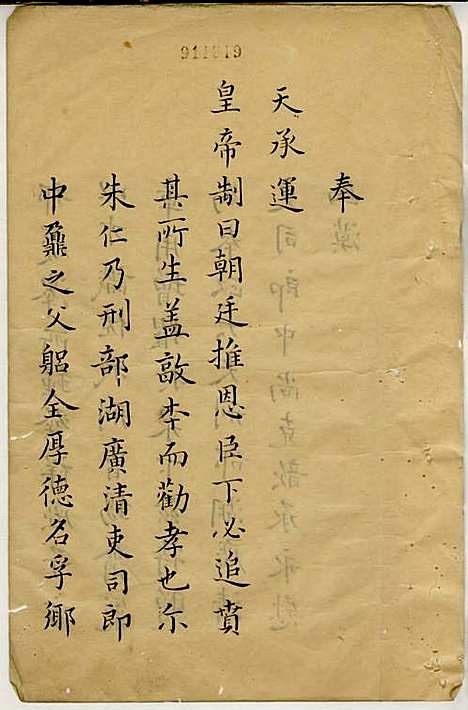 911619
奉
天承運
皇帝制曰朝廷推恩臣下必追賁
其所生盖敦本而勸孝也尒
朱仁乃刑部湖廣清吏司郎
中鼐之父躳全厚德名孚鄉